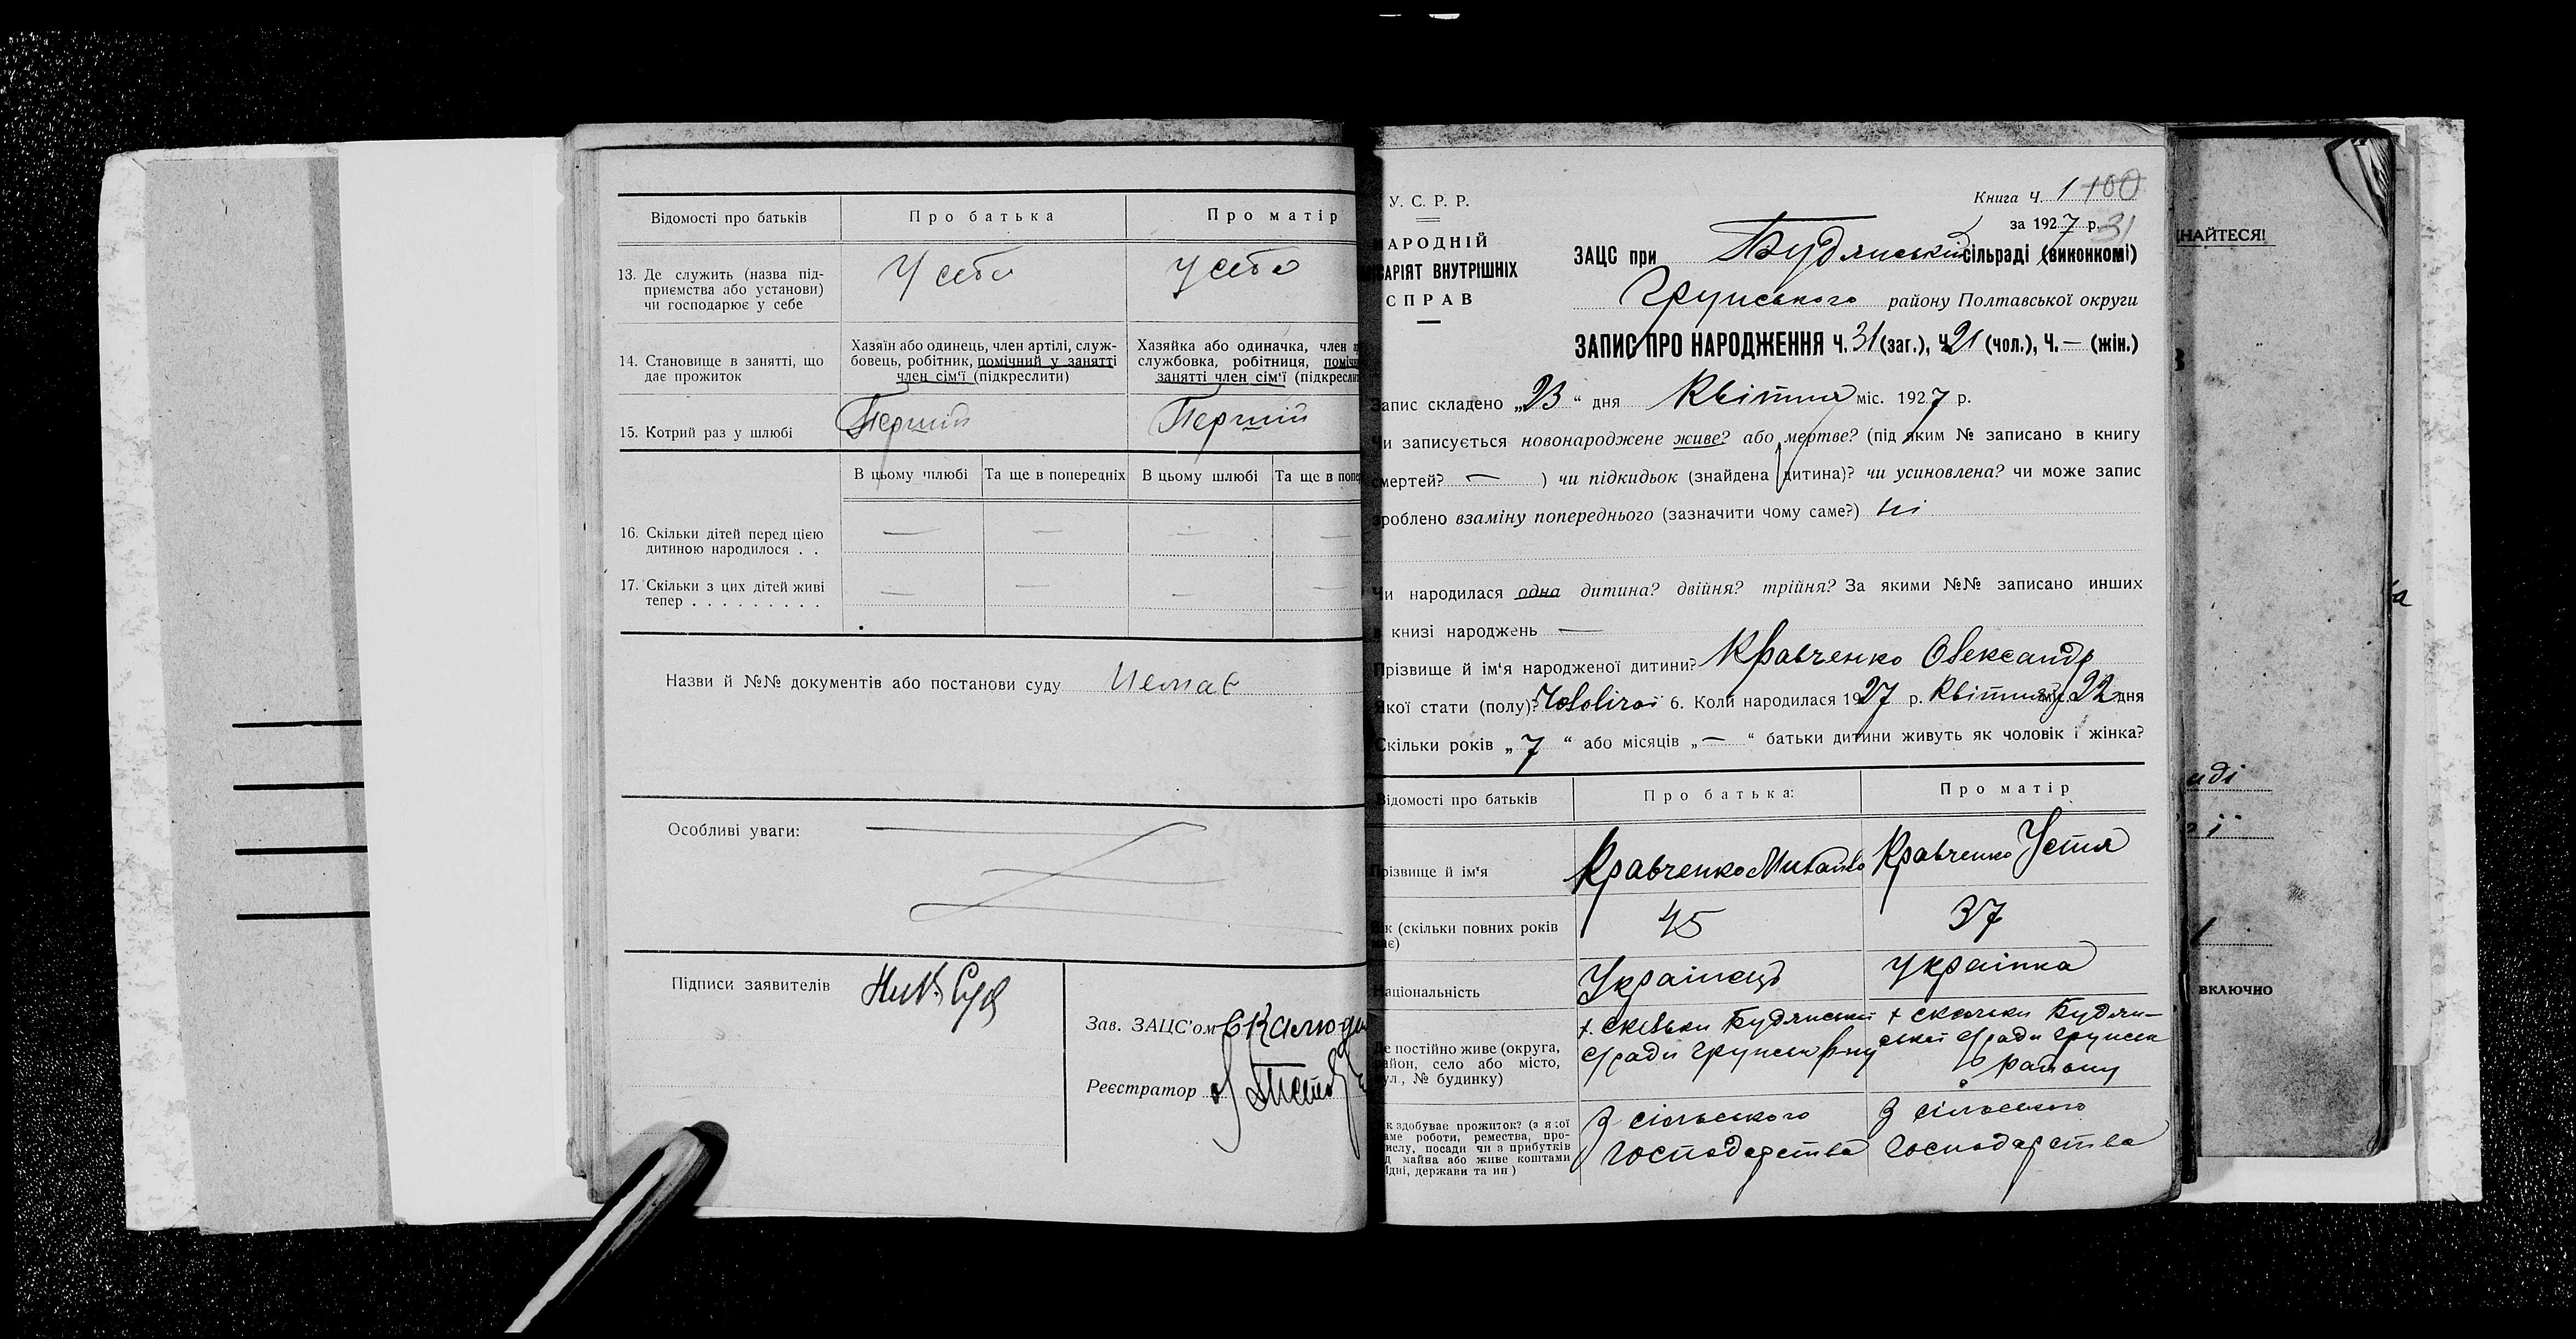 Відомості про батьків
Про батька
Про матір
13. Де служить (назва під-
приємства або установи)
чи господарює у себе
У себе
У себе
14. Становище в занятті, що
дає прожиток
Хазяїн або одинець, член артілі, служ-
бовець, робітник, помічний у занятті
член сім'ї (підкреслити)
Хазяйка або одиначка, член
службовка, робітниця,
занятті член сім'ї
15. Котрий раз у шлюбі
Перший
Перший
В цьому шлюбі
Та ще в попередніх
В цьому шлюбі
Та ще в
16. Скільки дітей перед цією
дитиною народилося . .
— — — —
17. Скільки з цих дітей живі
тепер . . . . . . . . .
— — — —
Назви й №№ документів або постанови суду Немає
Особливі уваги:
Підписи заявителів
Зав. ЗАЦС'ом
Реєстратор
У. С. Р. Р.
НАРОДНІЙ
ВНУТРІШНІХ
СПРАВ
Книга Ч. 1 100
за 1927 р. 31
ЗАЦС при Будянській сільраді (виконкомі)
Грунського району Полтавської округи
ЗАПИС ПРО НАРОДЖЕННЯ Ч. 31 (заг.), Ч. 21 (чол.), Ч. — (жін.)
Запис складено „23“ дня Квітня міс. 1927 р.
Чи записується новонароджене живе? або мертве? (під яким № записано в книгу
смертей? — ) чи підкидьок (знайдена дитина)? чи усиновлена? чи може запис
зроблено взаміну попереднього (зазначити чому саме?) Ні
Чи народилася одна дитина? двійня? трійня? За якими №№ записано инших
в книзі народжень —
Прізвище й ім'я народженої дитини? Кравченко Олександр
Якої стати (полу)? Чоловічої 6. Коли народилася 1927 р. Квітня міс. 22 дня
Скільки років „7“ або місяців „—“ батьки дитини живуть як чоловік і жінка?
Відомості про батьків
Про батька:
Про матір
Прізвище й ім'я
Кравченко Михайло
Кравченко Устя
Вік (скільки повних років
має)
45
37
Національність
Українець
Українка
Де постійно живе (округа,
район, село або місто,
вул., № будинку)
х. Будянської
с/ради Грунськ р-ну
х Будян-
ської с/ради Грунськ
району
Як здобуває прожиток? (з якої
саме роботи, ремества, про-
мислу, посади чи з прибутків
від майна або живе коштами
рідні, держави та ин)
З сільського
господарства
З сільського
господарства
включно